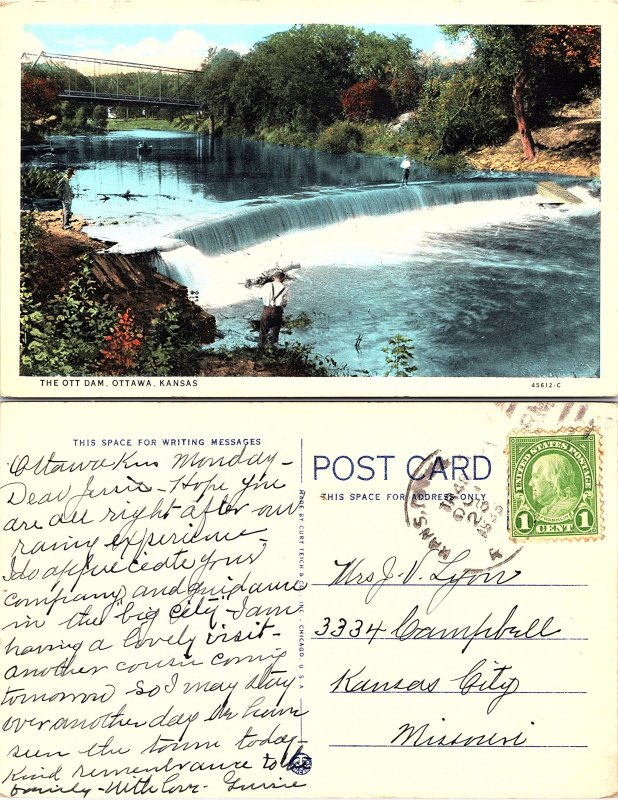 THE OTT DAM, OTTAWA, KANSAS
45612-C
THIS SPACE FOR WRITING MESSAGES
Ottawa Kns Monday-
Dear Jessie- Hope you
are all right after our
rainy experience-
I do appreciate your
company and guidance
in the "big city"- I am
having a lovely visit-
another cousin coming
tomorrow so I may stay
over another day. We have
seen the town today-
Kind remembrance to the
family- With Love-
MADE BY CURT TEICH & CO., INC., CHICAGO, U.S.A.
POST CARD
THIS SPACE FOR ADDRESS ONLY
KANS.
UNITED STATES POSTAGE
FRANKLIN
1 CENT 1
Mrs J. V. Lyon
3334 Campbell
Kansas City
Missouri